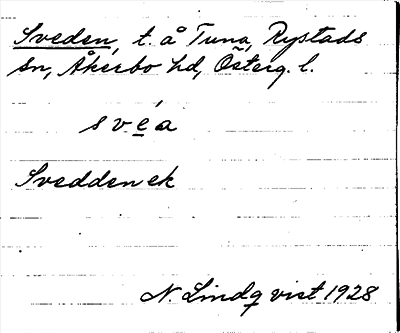 Sveden, t. å Tuna, Rystads
sn, Åkerbo hd, Österg. l.
své̱a
Sveddenek
N. Lindqvist 1928